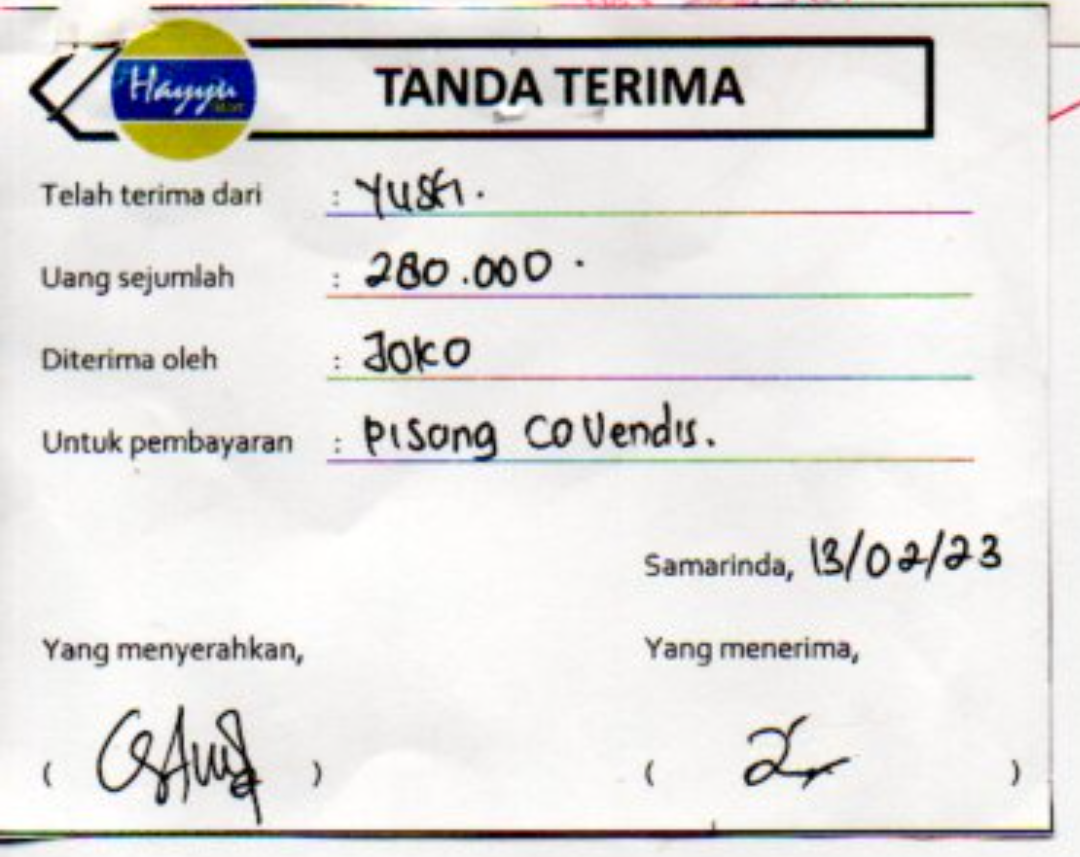 Hayyu
TANDA TERIMA
Telah terima dari : Yusti.
Uang sejumlah : 280.000.
Diterima oleh : JOKO
Untuk pembayaran : Pisang Covendis.
Samarinda, 13/02/23
Yang menyerahkan,
Yang menerima,
( )
( )